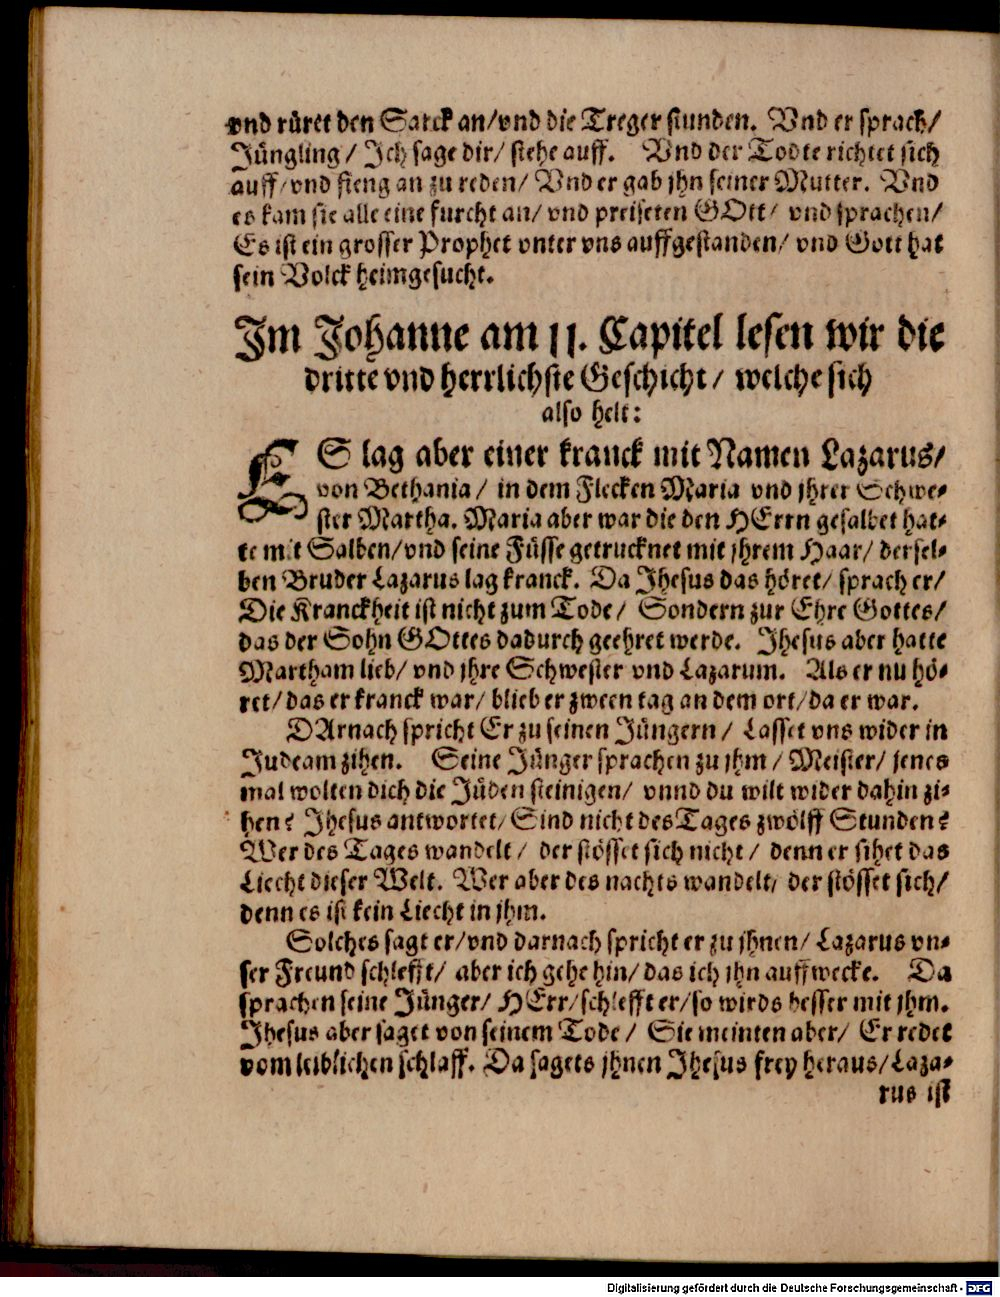 vnd rüret den Sarck an/vnd die Treger stunden. Vnd er sprach/
Jüngling / Jch sage dir/ stehe auff. Vnd der Todte richtet sich
auff/vnd fieng an zu reden/ Vnd er gab jhn seiner Mutter. Vnd
es kam sie alle eine furcht an/ vnd preiseten GOtt/ vnd sprachen/
Es ist ein grosser Prophet vnter vns auffgestanden/ vnd Gott hat
sein Volck heimgesucht.
Jm Johanne am 11. Capitel lesen wir die
dritte vnd herrlichste Geschicht/ welche sich
also helt:
ES lag aber einer kranck mit Namen Lazarus/
von Bethania / in dem Flecken Maria vnd jhrer Schwe-
ster Martha. Maria aber war die den HErrn gesalbet hat-
te mit Salben/vnd seine Füsse getrucknet mit jhrem Haar/ dersel-
ben Bruder Lazarus lag kranck. Da Jhesus das höret/ sprach er/
Die Kranckheit ist nicht zum Tode/ Sondern zur Ehre Gottes/
das der Sohn GOttes dadurch geehret werde. Jhesus aber hatte
Martham lieb/ vnd jhre Schwester vnd Lazarum. Als er nu hö-
ret/ das er kranck war/ blieb er zween tag an dem ort/da er war.
DArnach spricht Er zu seinen Jüngern / Lasset vns wider in
Judeam zihen. Seine Jünger sprachen zu jhm / Meister/ jenes
mal wolten dich die Jüden steinigen/ vnnd du wilt wider dahin zi-
hen? Jhesus antwortet/ Sind nicht des Tages zwölff Stunden?
Wer des Tages wandelt / der stösset sich nicht / denn er sihet das
Liecht dieser Welt. Wer aber des nachts wandelt/ der stösset sich/
denn es ist kein Liecht in jhm.
Solches sagt er/vnd darnach spricht er zu jhnen/ Lazarus vn-
ser Freund schlefft/ aber ich gehe hin/ das ich jhn auffwecke. Da
sprachen seine Jünger/ HErr/schlefft er/so wirds besser mit jhm.
Jhesus aber saget von seinem Tode / Sie meinten aber/ Er redet
vom leiblichen schlaff. Da sagets jhnen Jhesus frey heraus/Laza-
rus ist
Digitalisierung gefördert durch die Deutsche Forschungsgemeinschaft - DFG